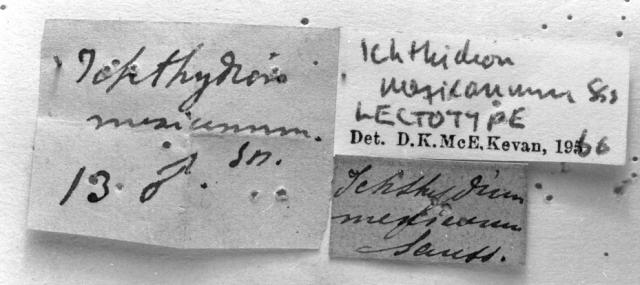 Ichthydion
mexicanum.
Sss.
13. ♂.
Ichthidion
mexicanum Sss
LECTOTYPE
Det. D.K.McE.Kevan, 1966
Ichthydium
mexicanum
Sauss.